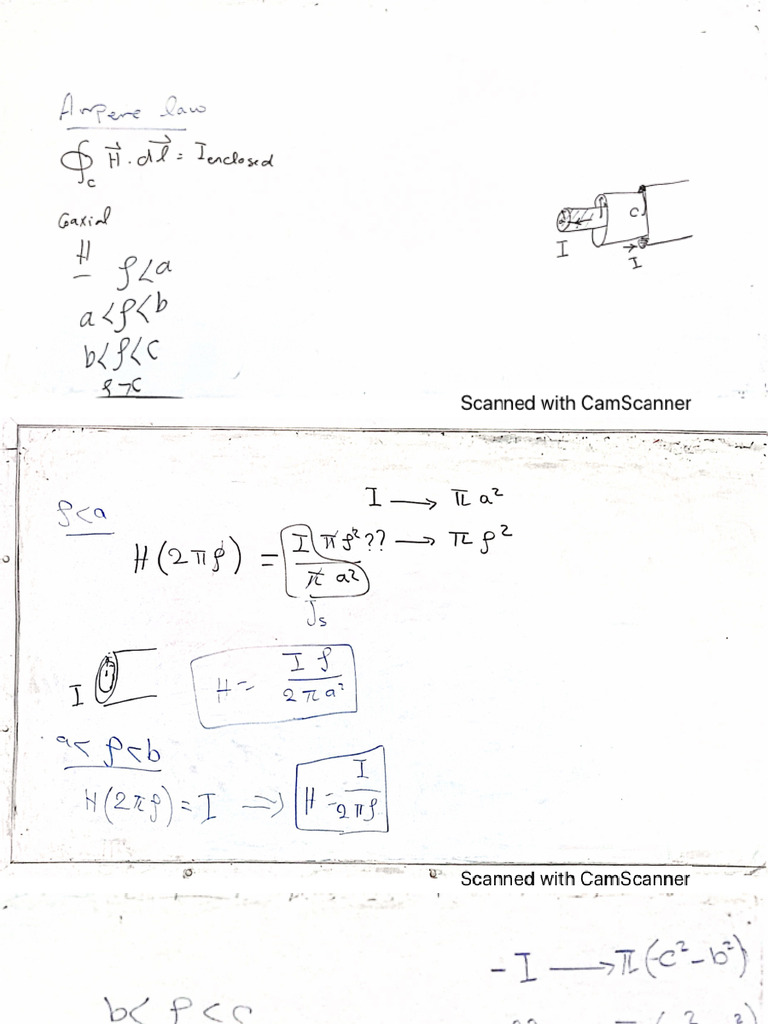 Ampere law
∮c H⃗ · dl⃗ = I enclosed
Coaxial
H
ρ < a
a < ρ < b
b < ρ < c
ρ > c
I
C
I
Scanned with CamScanner
I → π a²
ρ < a
H(2πρ) = I πρ² / π a² ?? → π ρ²
Js
I
H = I ρ / 2 π a²
a < ρ < b
H(2πρ) = I ⇒ H = I / 2πρ
Scanned with CamScanner
-I → π(c² - b²)
b < ρ < c